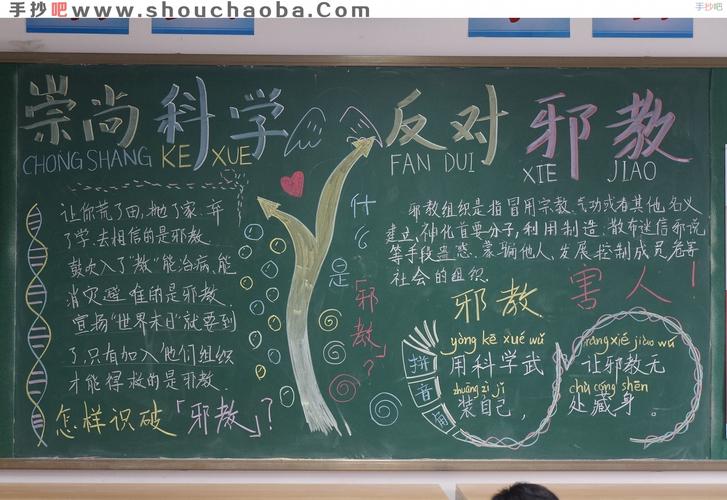 手抄吧 www.shouchaoba.Com
手抄吧
崇尚科学 反对邪教
CHONG SHANG KE XUE FAN DUI XIE JIAO
让你荒了田，抛了家、弃
了学，去相信的是邪教。
鼓吹入了“教”能治病，能
消灾避难的是邪教。
宣扬“世界末日”就要到
了，只有加入他们组织
才能得救的是邪教。
怎样识破「邪教」？
什么是「邪教」？
邪教组织是指冒用宗教、气功或者其他名义
建立、神化首要分子，利用制造、散布迷信邪说
等手段蛊惑、蒙骗他人，发展、控制成员，危害
社会的组织。
邪教害人！
拼音角
yòng kē xué wǔ
用科学武
zhuāng zì jǐ
装自己
ràng xié jiào wú
让邪教无
chù cáng shēn
处藏身。